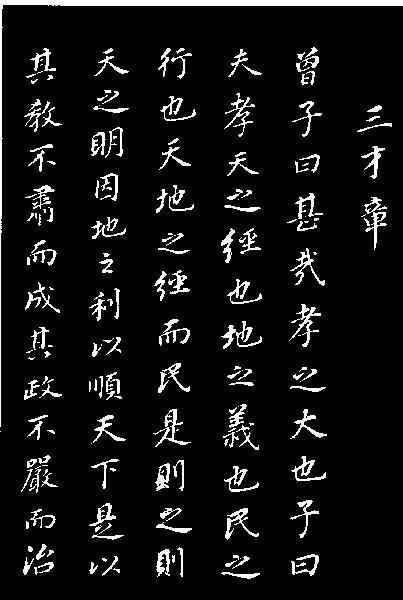 三才章
曾子曰甚哉孝之大也子曰
夫孝天之經也地之義也民之
行也天地之經而民是則之則
天之明因地之利以順天下是以
其教不肅而成其政不嚴而治